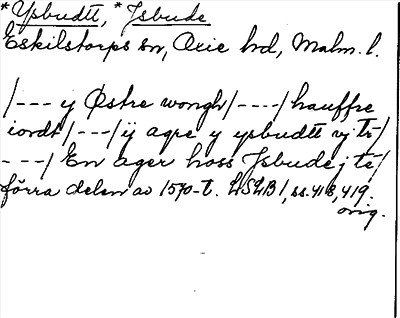 *Ysbudtt, *Jsbude
Eskilstorps sn, Oxie hd, Malm. l.
/--- y Østre wongh/----/ hauffre
iordt/---/ij agre y ysbudtt vj tr/
---/ En ager hoss Jsbude j te/
förra delen av 1570-t. LSLB1, ss. 418, 419.
orig.